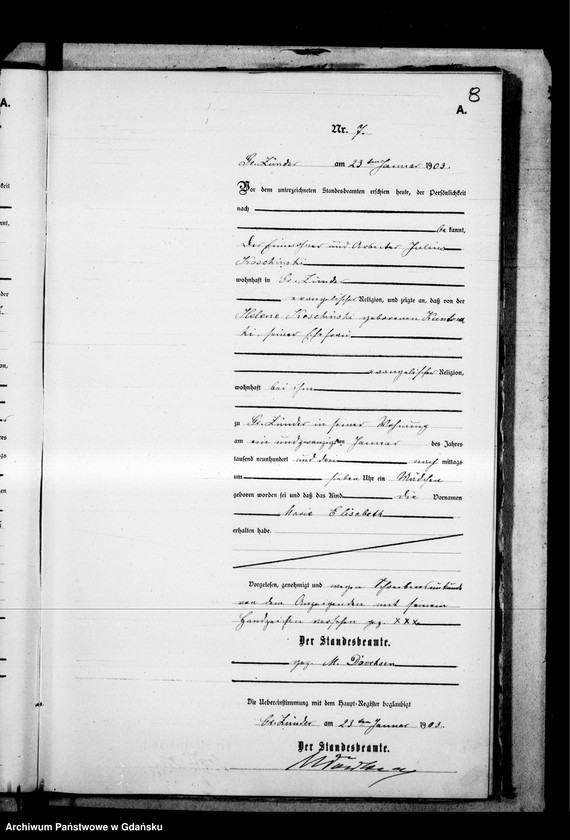 8
A.
Nr. 7.
Gr. Zünder am 23ten Januar 1903.
Vor dem unterzeichneten Standesbeamten erschien heute, der Persönlichkeit
nach
bekannt,
Der Einwohner und Arbeiter Julius
Koschinski
wohnhaft in Gr. Zünder
evangelischer Religion, und zeigte an, daß von der
Helene Koschinski geborenen
ki, seiner Ehefrau
evangelischer Religion,
wohnhaft bei ihm
zu Gr. Zünder in seiner Wohnung
am ein und zwanzigsten Januar des Jahres
tausend neunhundert und drei nach mittags
um sieben Uhr ein Mädchen
geboren worden sei und daß das Kind die Vornamen
Marie Elisabeth
erhalten habe.
Vorgelesen, genehmigt und wegen Schreibensunkunde
von dem Anzeigenden mit seinem
Handzeichen versehen gez. XXX
Der Standesbeamte.
gez. M.
Die Uebereinstimmung mit dem Haupt-Register beglaubigt
Gr. Zünder am 23ten Januar 1903.
Der Standesbeamte.
A.
Archiwum Państwowe w Gdańsku